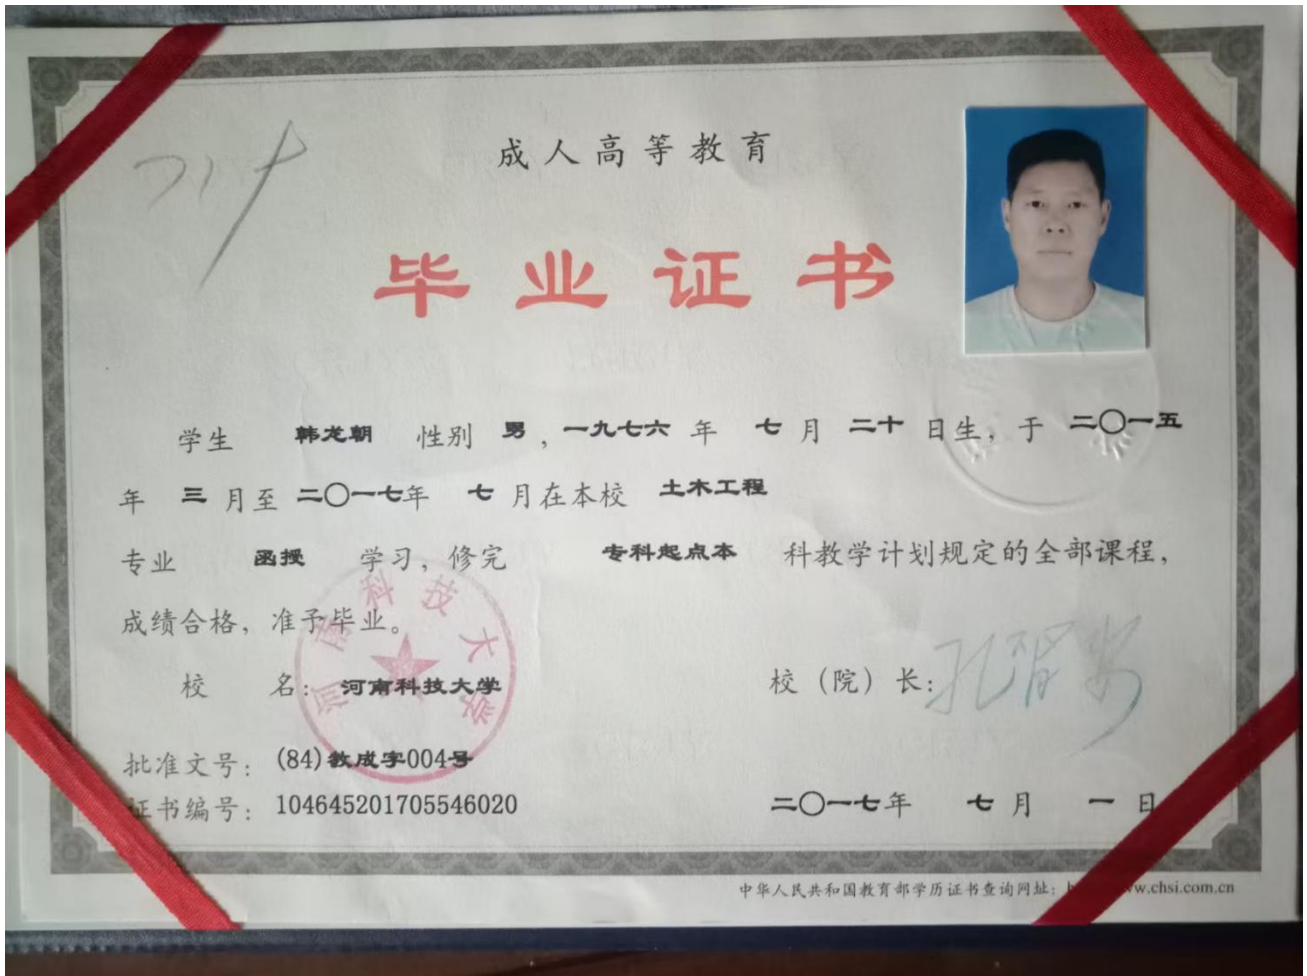 成人高等教育
毕业证书
学生 韩龙朝 性别 男，一九七六年 七月 二十日生，于 二〇一五
年 三月至 二〇一七年 七月在本校 土木工程
专业 函授 学习，修完 专科起点本 科教学计划规定的全部课程，
成绩合格，准予毕业。
校 名：河南科技大学
校（院）长：
河南科技大学
批准文号：(84)教成字004号
证书编号：104645201705546020
二〇一七年 七月 一日
中华人民共和国教育部学历证书查询网址：h ww.chsi.com.cn